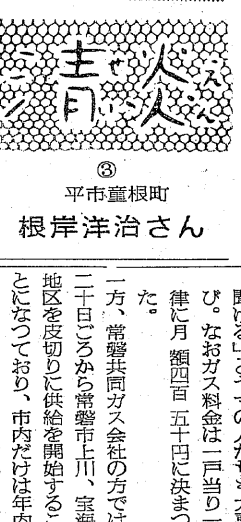 青炎
せいえん
③
平市童根町
根岸洋治さん
び。なおガス料金は一戸当り一
律に月額四百五十円に決まつ
た。
一方、常磐共同ガス会社の方では
二十日ごろから常磐市上川、宝海
地区を皮切りに供給を開始するこ
とになつており、市内だけは年内